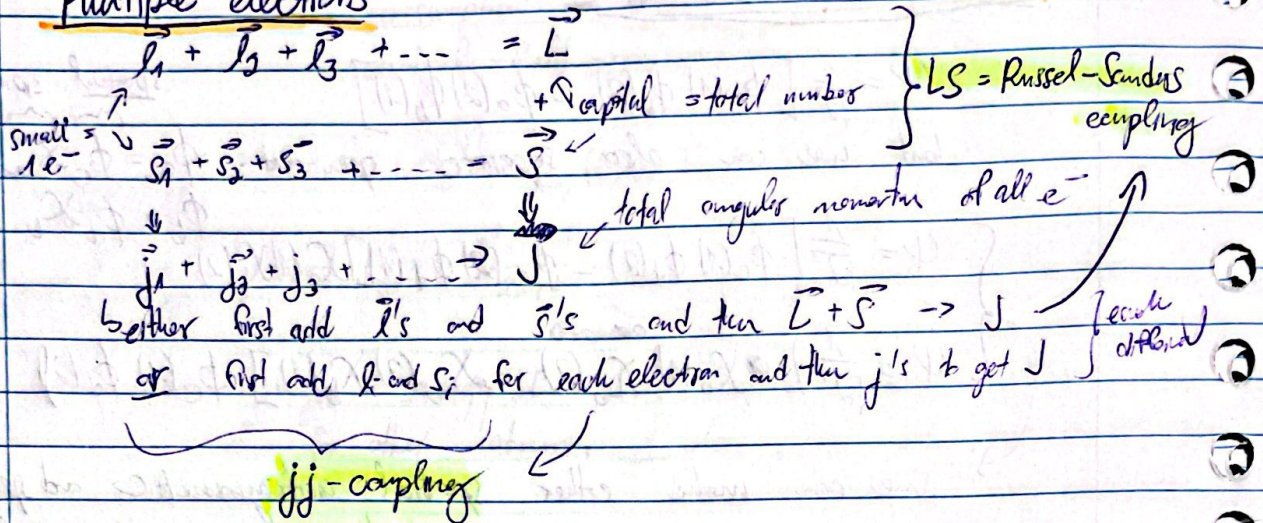 multiple electrons
l⃗1 + l⃗2 + l⃗3 + ---- = L⃗
small = 1e⁻
+ ↖ capital = total number
LS = Russel-Sanders coupling
s⃗1 + s⃗2 + s⃗3 + ---- = S⃗
total angular momentum of all e⁻
j⃗1 + j⃗2 + j3 + ..... → J
↳ either first add l⃗'s and s⃗'s and then L⃗ + S⃗ → J
or first add li and si for each electron and then j's to get J
each
jj - coupling